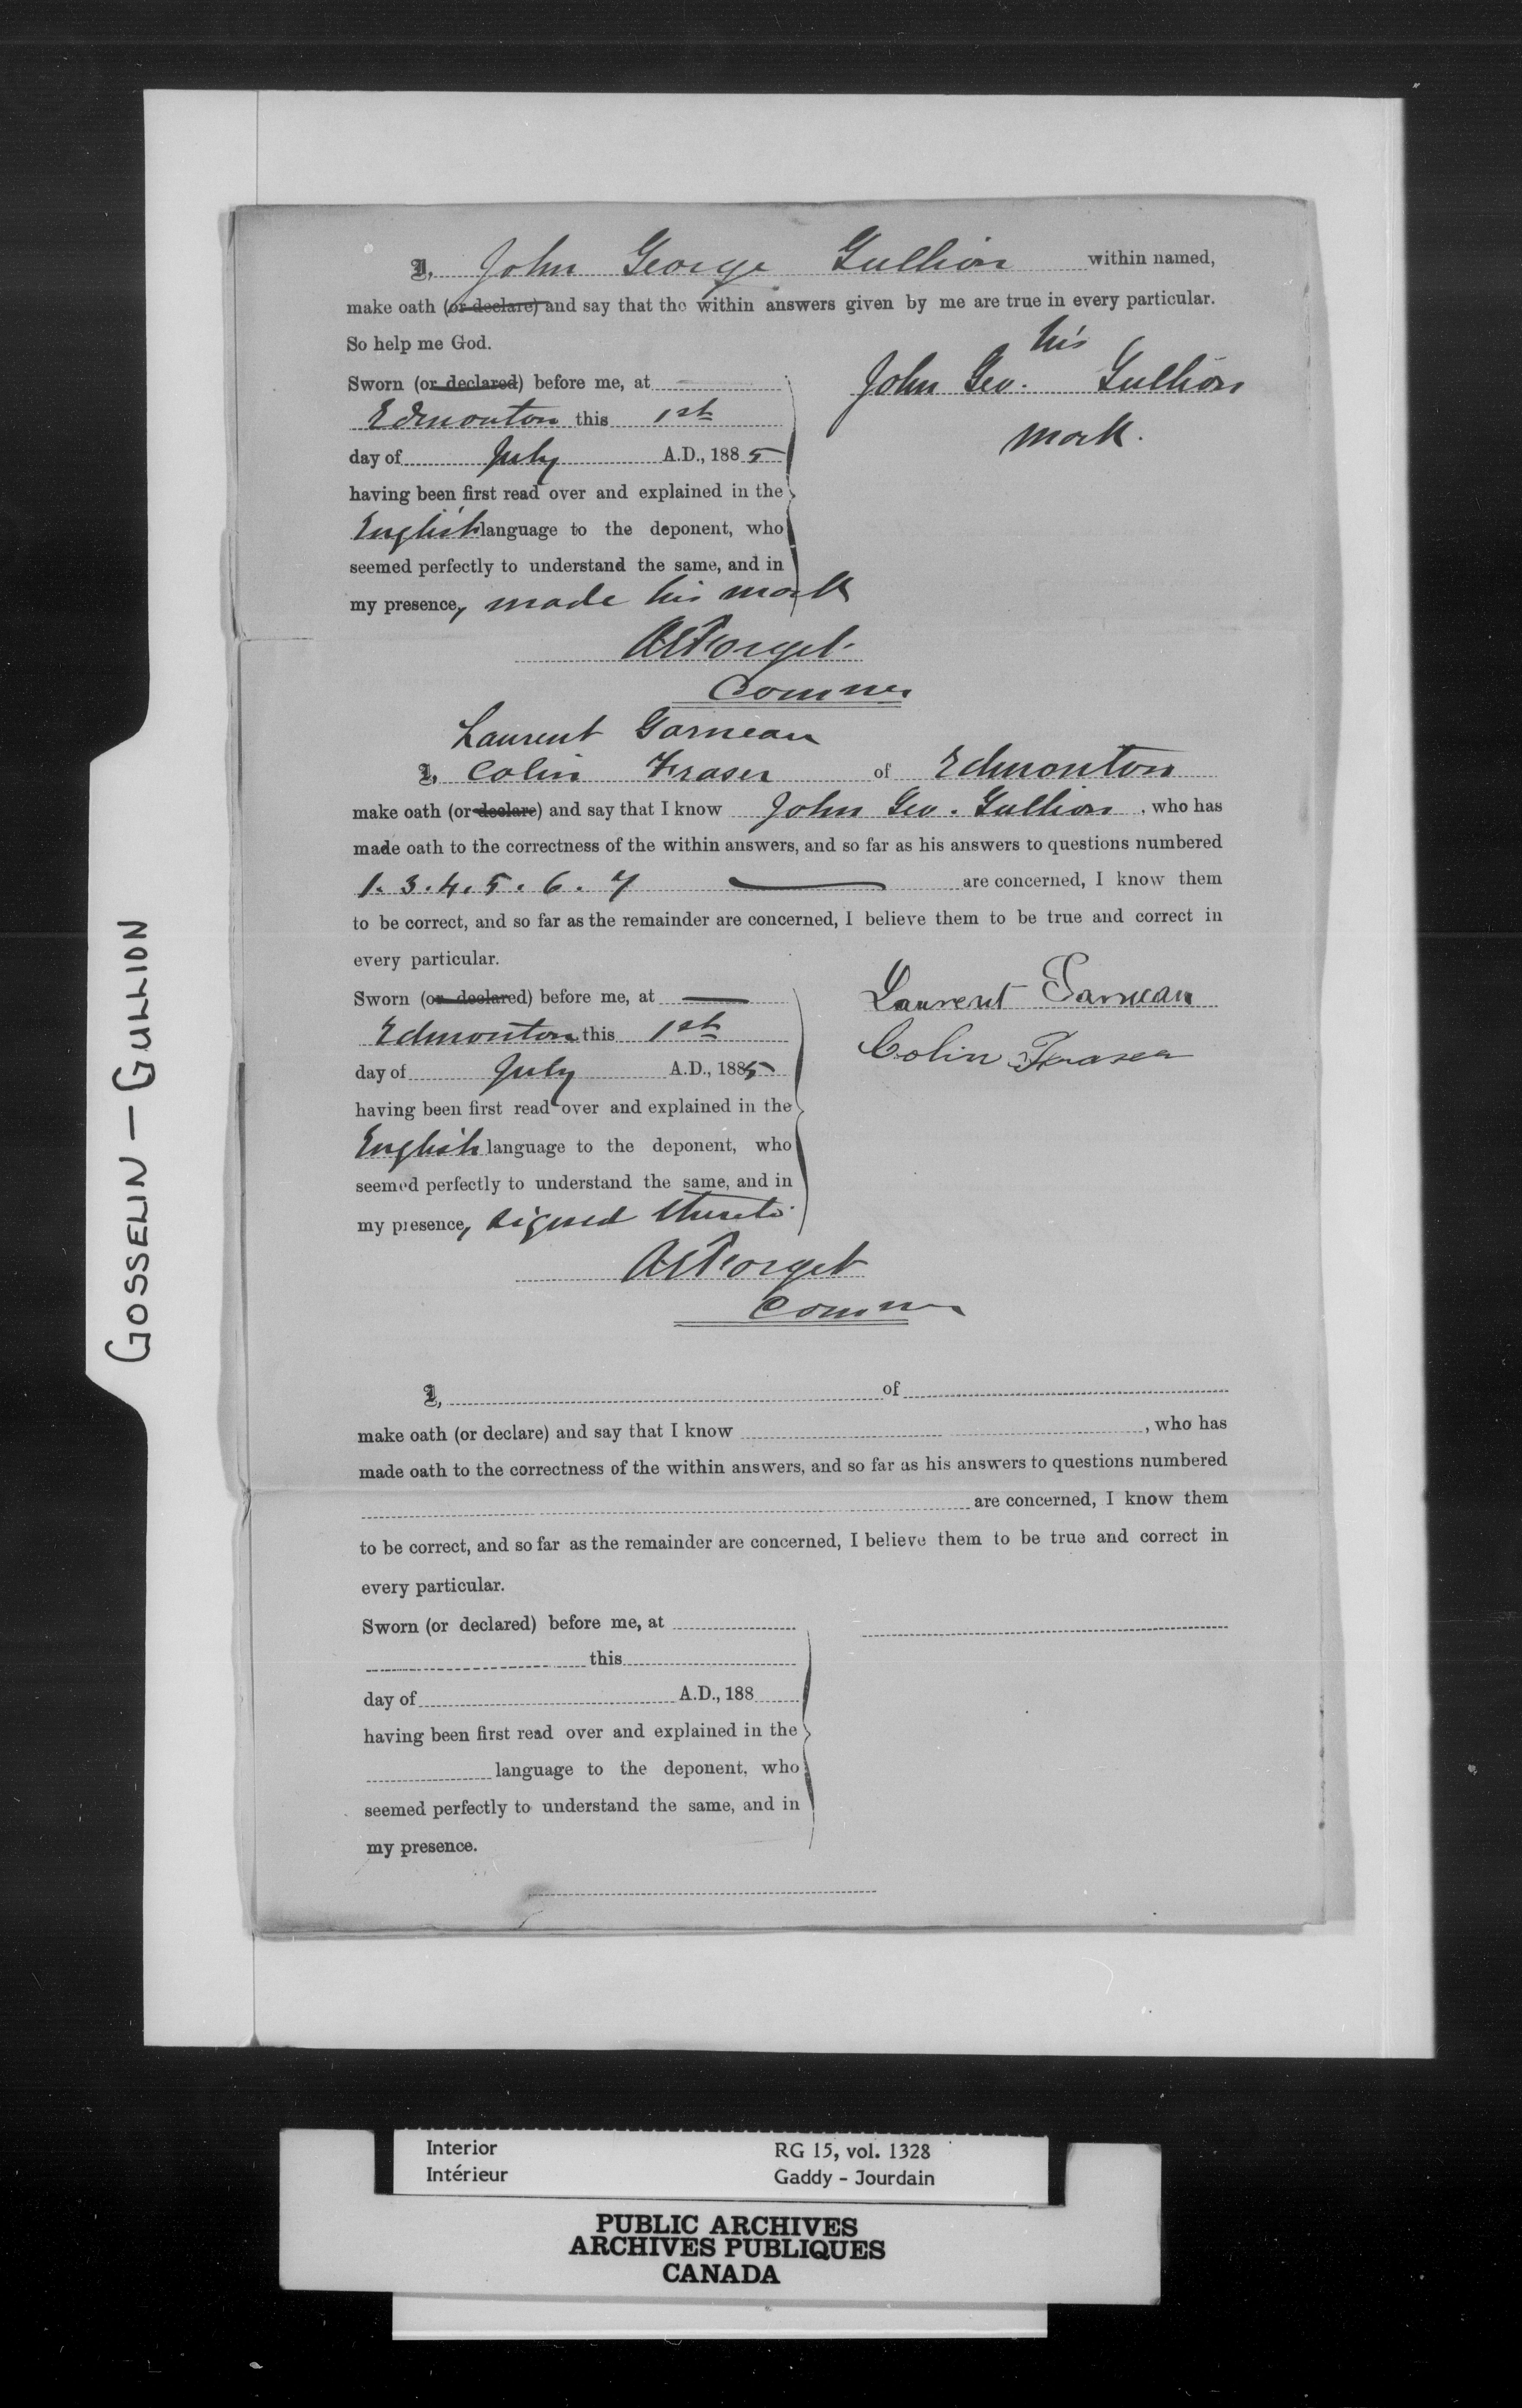 I, John George Gullion within named,
make oath (or declare) and say that the within answers given by me are true in every particular.
So help me God.
his
Sworn (or declared) before me, at John Geo. Gullion
Edmonton this 1st
mark.
day of July A.D., 1885
having been first read over and explained in the
English language to the deponent, who
seemed perfectly to understand the same, and in
my presence, made his mark
AEForget
Commr
Laurent Garneau
I, Colin Fraser of Edmonton
make oath (or declare) and say that I know John Geo. Gullion, who has
made oath to the correctness of the within answers, and so far as his answers to questions numbered
1. 3. 4. 5. 6. 7 are concerned, I know them
to be correct, and so far as the remainder are concerned, I believe them to be true and correct in
every particular.
Sworn (or declared) before me, at Laurent Garneau
Edmonton this 1st
Colin Fraser
day of July A.D., 1885
having been first read over and explained in the
English language to the deponent, who
seemed perfectly to understand the same, and in
my presence, signed thereto.
AEForget
Commr
I, of
make oath (or declare) and say that I know , who has
made oath to the correctness of the within answers, and so far as his answers to questions numbered
are concerned, I know them
to be correct, and so far as the remainder are concerned, I believe them to be true and correct in
every particular.
Sworn (or declared) before me, at
this
day of A.D., 188
having been first read over and explained in the
language to the deponent, who
seemed perfectly to understand the same, and in
my presence.
GOSSELIN — GULLION
Interior RG 15, vol. 1328
Intérieur Gaddy - Jourdain
PUBLIC ARCHIVES
ARCHIVES PUBLIQUES
CANADA